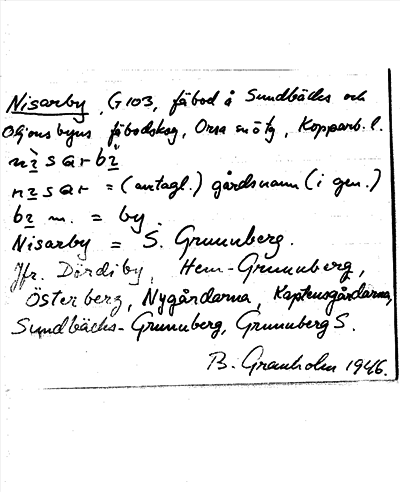 Nisarby, G103, fäbod å Sundbäcks och
Oljonsbyns fäbodskog, Orsa snötg, Kopparb. l.
nìsarbì
nisar = (antagl.) gårdsnamn (i gen.)
bi n. = by.
Nisarby = S. Grunuberg.
Jfr. Dördiby, Hem-Grunuberg,
Österberg, Nygårdarna, Kaptensgårdarna,
Sundbäcks-Grunuberg, Grunuberg S.
B. Granholm 1946.